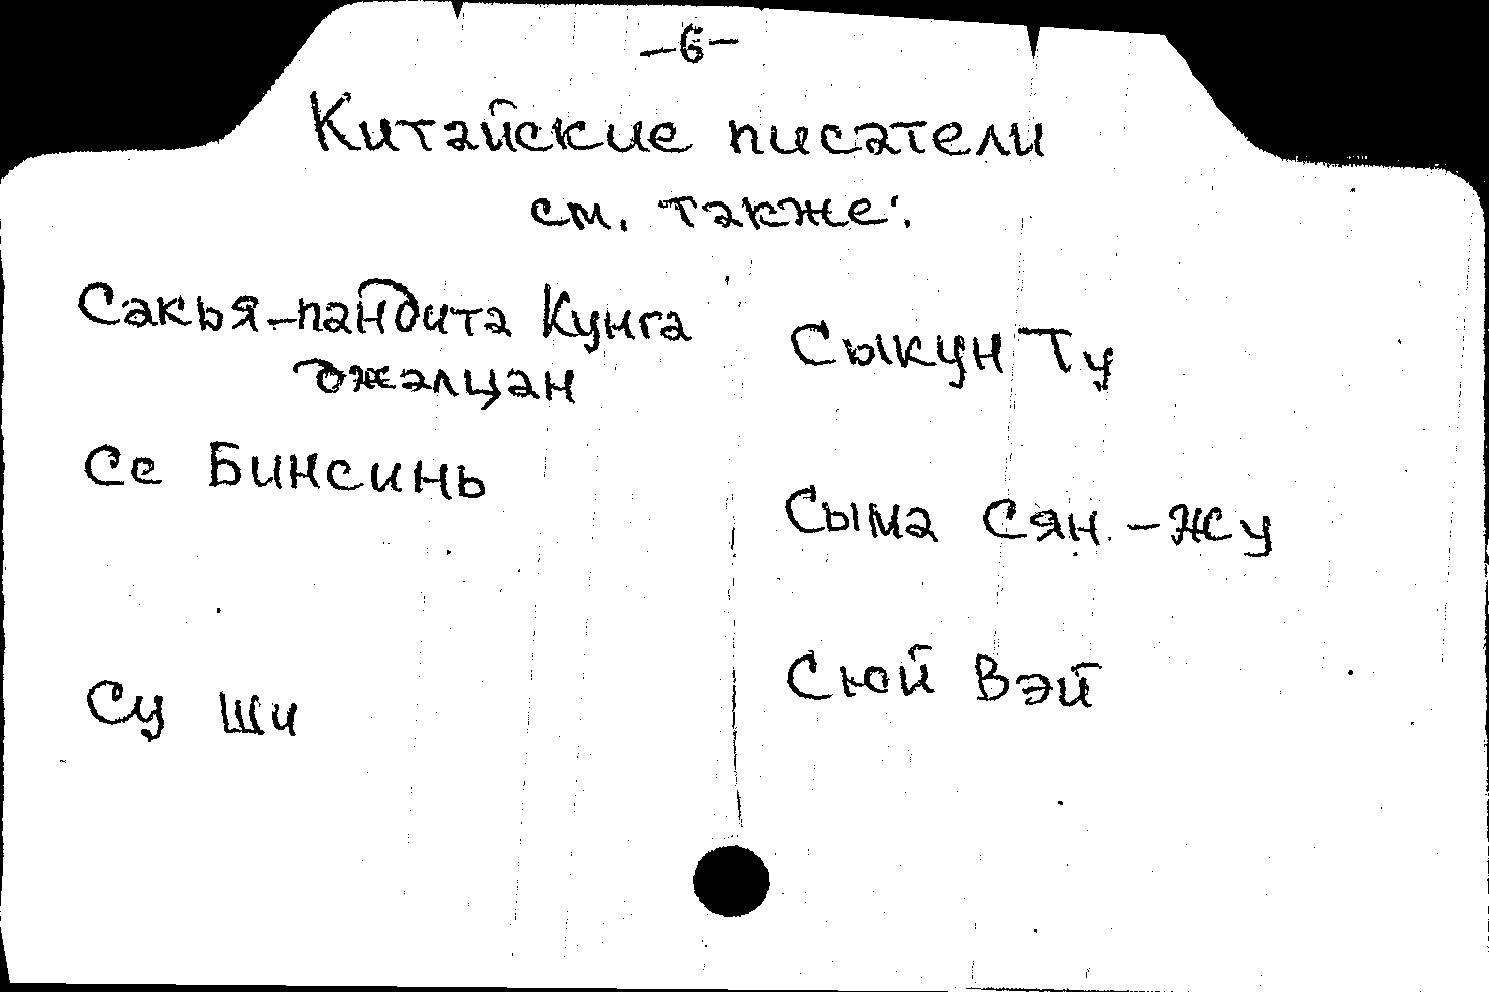 -6-
Китайские писатели
см. также:
Сакья-пандита Кунга
джалцан
Се Бинсинь
Су Ши
Сыкун Ту
Сыма Сян-жу
Сюй Вэй